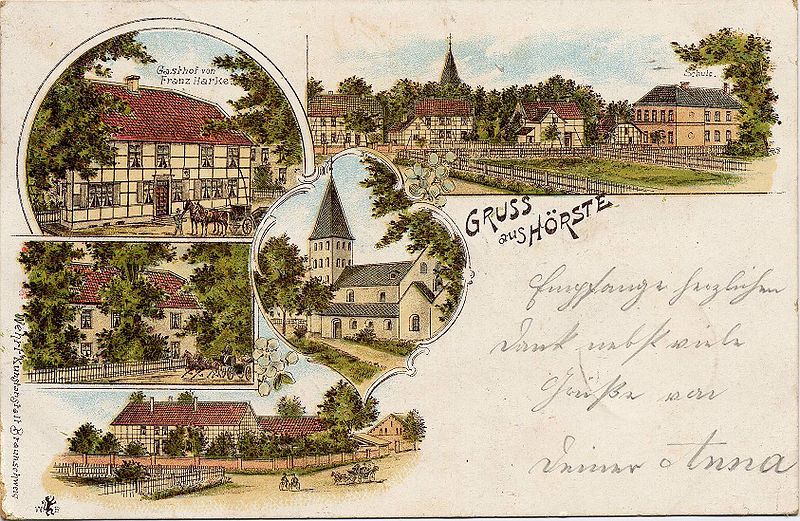 Gasthof von
Franz Harke.
Schule.
GRUSS
aus HÖRSTE
Empfange herzlichen
Dank nebst viele
Grüße von
Deiner Anna
Kunstanstalt Braunschweig